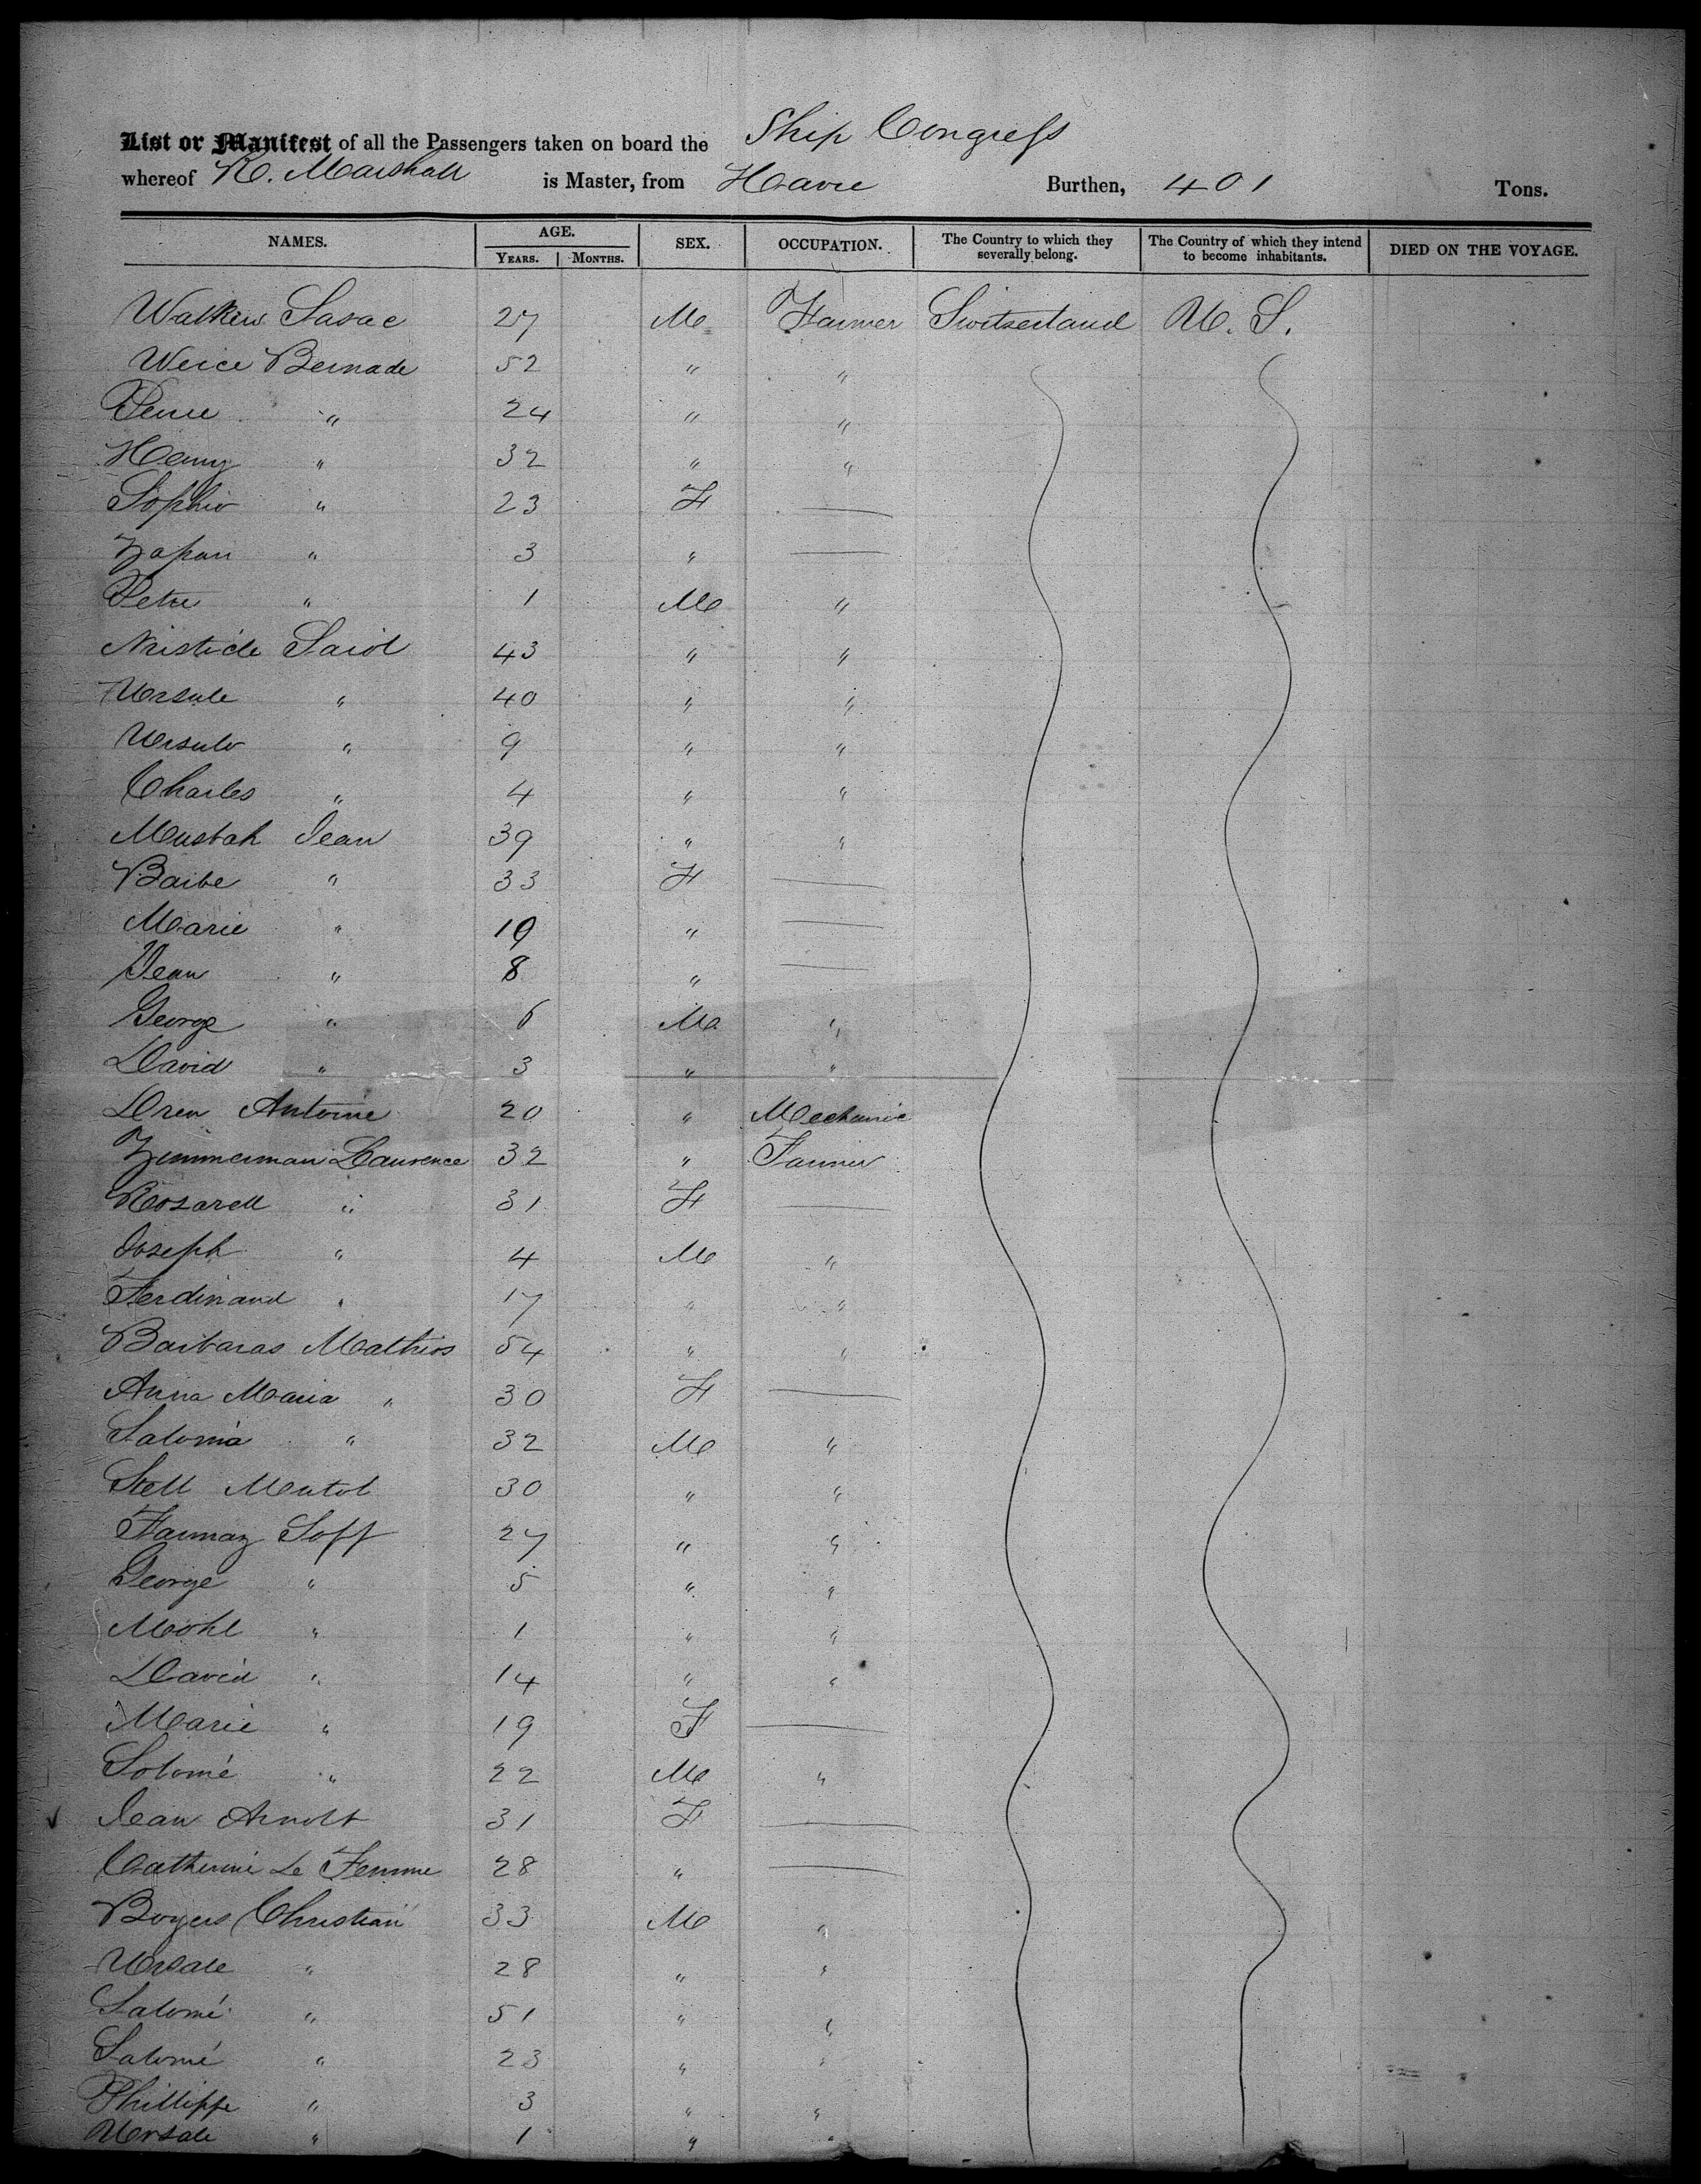 List or Manifest of all the Passengers taken on board the Ship Congress
whereof R. Marshall is Master, from Havre Burthen, 401 Tons.
NAMES. AGE. YEARS. MONTHS. SEX. OCCUPATION. The Country to which they severally belong. The Country of which they intend to become inhabitants. DIED ON THE VOYAGE.
27 M Farmer Switzerland U. S.
Weice Bernade 52 " "
" 24 " "
Henry " 32 " "
Sophie " 23 F —
" 3 " —
Peter " 1 M "
Aristide 43 " "
Ursule " 40 " "
Ursule " 9 " "
Charles " 4 " "
Mustah Jean 39 " "
Barbe " 33 F —
Marie " 19 " —
Jean " 8 " —
George " 6 M "
David " 3 " "
Drew Antoine 20 " Mechanic
Zimmerman Laurence 32 " Farmer
Rosarell " 31 F —
Joseph " 4 M "
Ferdinand " 17 " "
Barbaras Mathios 54 " "
Anna Maria " 30 F —
Saloma " 32 M "
Stell 30 " "
Soff 27 " "
George " 5 " "
Mohl " 1 " "
David " 14 " "
Marie " 19 F —
Solomé " 22 M "
Jean Arnolt 31 F —
Catherine Le Femme 28 " —
Boyers Christian 33 M "
Ursale " 28 " "
Salomé " 51 " "
Salomé " 23 " "
Phillippe " 3 " "
Ursale " 1 " "